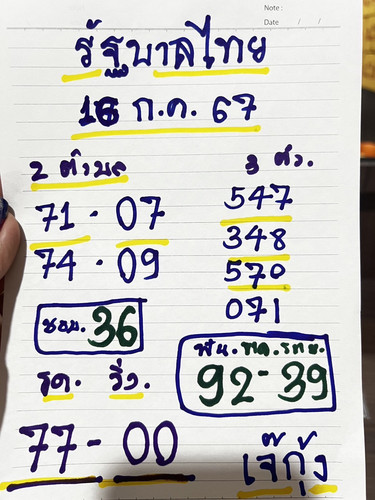 Note :
Date / /
รัฐบาลไทย
16 ก.ค. 67
2 ตัวบล
3 ตัว.
71 - 07
547
74 - 09
348
570
071
ชอบ. 36
92 - 39
รูด. วิ่ง.
77 - 00
เจ๊กุ้ง